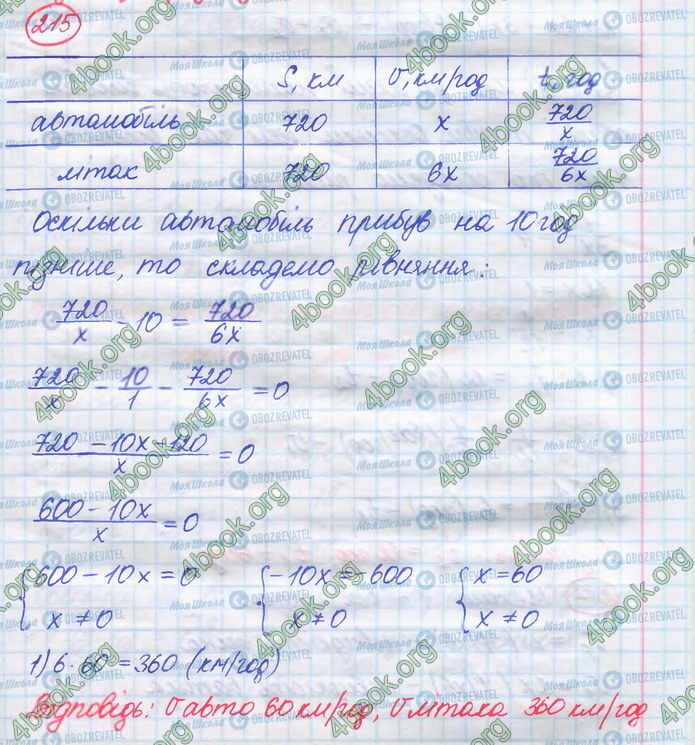 215
S, км | v, км/год | t, год
автомобіль | 720 | x | 720/x
літак | 720 | 6x | 720/6x
Оскільки автомобіль прибув на 10 год
пізніше, то складемо рівняння:
720/x - 10 = 720/6x
720/x - 10/1 - 720/6x = 0
(720 - 10x - 120)/x = 0
(600 - 10x)/x = 0
{ 600 - 10x = 0 { -10x = -600 { x = 60
x ≠ 0 x ≠ 0 x ≠ 0
1) 6 · 60 = 360 (км/год)
Відповідь: v авто 60 км/год, v літака 360 км/год
4book.org
Моя Школа OBOZREVATEL